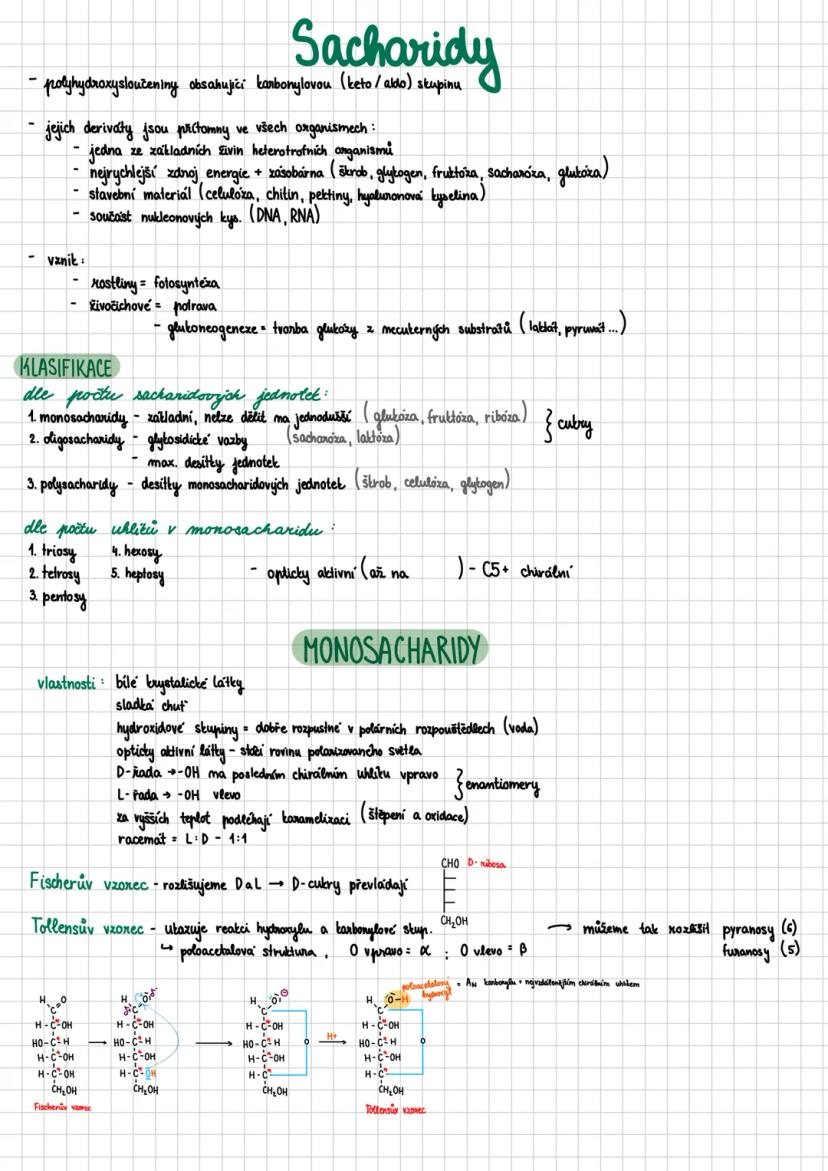 Sacharidy
- polyhydroxysloučeniny obsahující karbonylovou (keto/aldo) skupinu
- jejich deriváty jsou přítomny ve všech organismech:
- jedna ze základních živin heterotrofních organismů
- nejrychlejší zdroj energie + zásobárna (škrob, glykogen, fruktóza, sacharóza, glukóza)
- stavební materiál (celulóza, chitin, pektiny, hyaluronová kyselina)
- součást nukleonových kys. (DNA, RNA)
- vznik:
- rostliny = fotosyntéza
- živočichové = potrava
- glukoneogeneze = tvorba glukózy z necukerných substrátů (laktát, pyruvát...)
KLASIFIKACE
dle počtu sacharidových jednotek:
1. monosacharidy - základní, nelze dělit na jednodušší (glukóza, fruktóza, ribóza) } cukry
2. oligosacharidy - glykosidické vazby (sacharóza, laktóza)
- max. desítky jednotek
3. polysacharidy - desítky monosacharidových jednotek (škrob, celulóza, glykogen)
dle počtu uhlíků v monosacharidu:
1. triosy 4. hexosy
2. tetrosy 5. heptosy - opticky aktivní (až na ) - C5+ chirální
3. pentosy
MONOSACHARIDY
vlastnosti: bílé krystalické látky
sladká chuť
hydroxidové skupiny = dobře rozpustné v polárních rozpouštědlech (voda)
opticky aktivní látky - stáčí rovinu polarizovaného světla
D-řada → -OH na posledním chirálním uhlíku vpravo } enantiomery
L-řada → -OH vlevo
za vyšších teplot podléhají karamelizaci (štěpení a oxidace)
racemát = L:D - 1:1
CHO D-ribosa
Fischerův vzorec - rozlišujeme D a L → D-cukry převládají
CH₂OH
Tollensův vzorec - ukazuje reakci hydroxylu a karbonylové skup. → můžeme tak rozlišit pyranosy (6)
↳ poloacetalová struktura, O vpravo = α ; O vlevo = β furanosy (5)
poloacetalový hydroxyl = A_N karbonylu + nejvzdálenějším chirálním uhlíkem
H O H O H O⊖ H O-H
C C C C
H-C-OH H-C-OH H-C-OH H-C-OH
HO-C-H → HO-C-H → HO-C-H O H+ → HO-C-H O
H-C-OH H-C-OH H-C-OH H-C-OH
H-C-OH H-C-OH H-C H-C
CH₂OH CH₂OH CH₂OH CH₂OH
Fischerův vzorec Tollensův vzorec